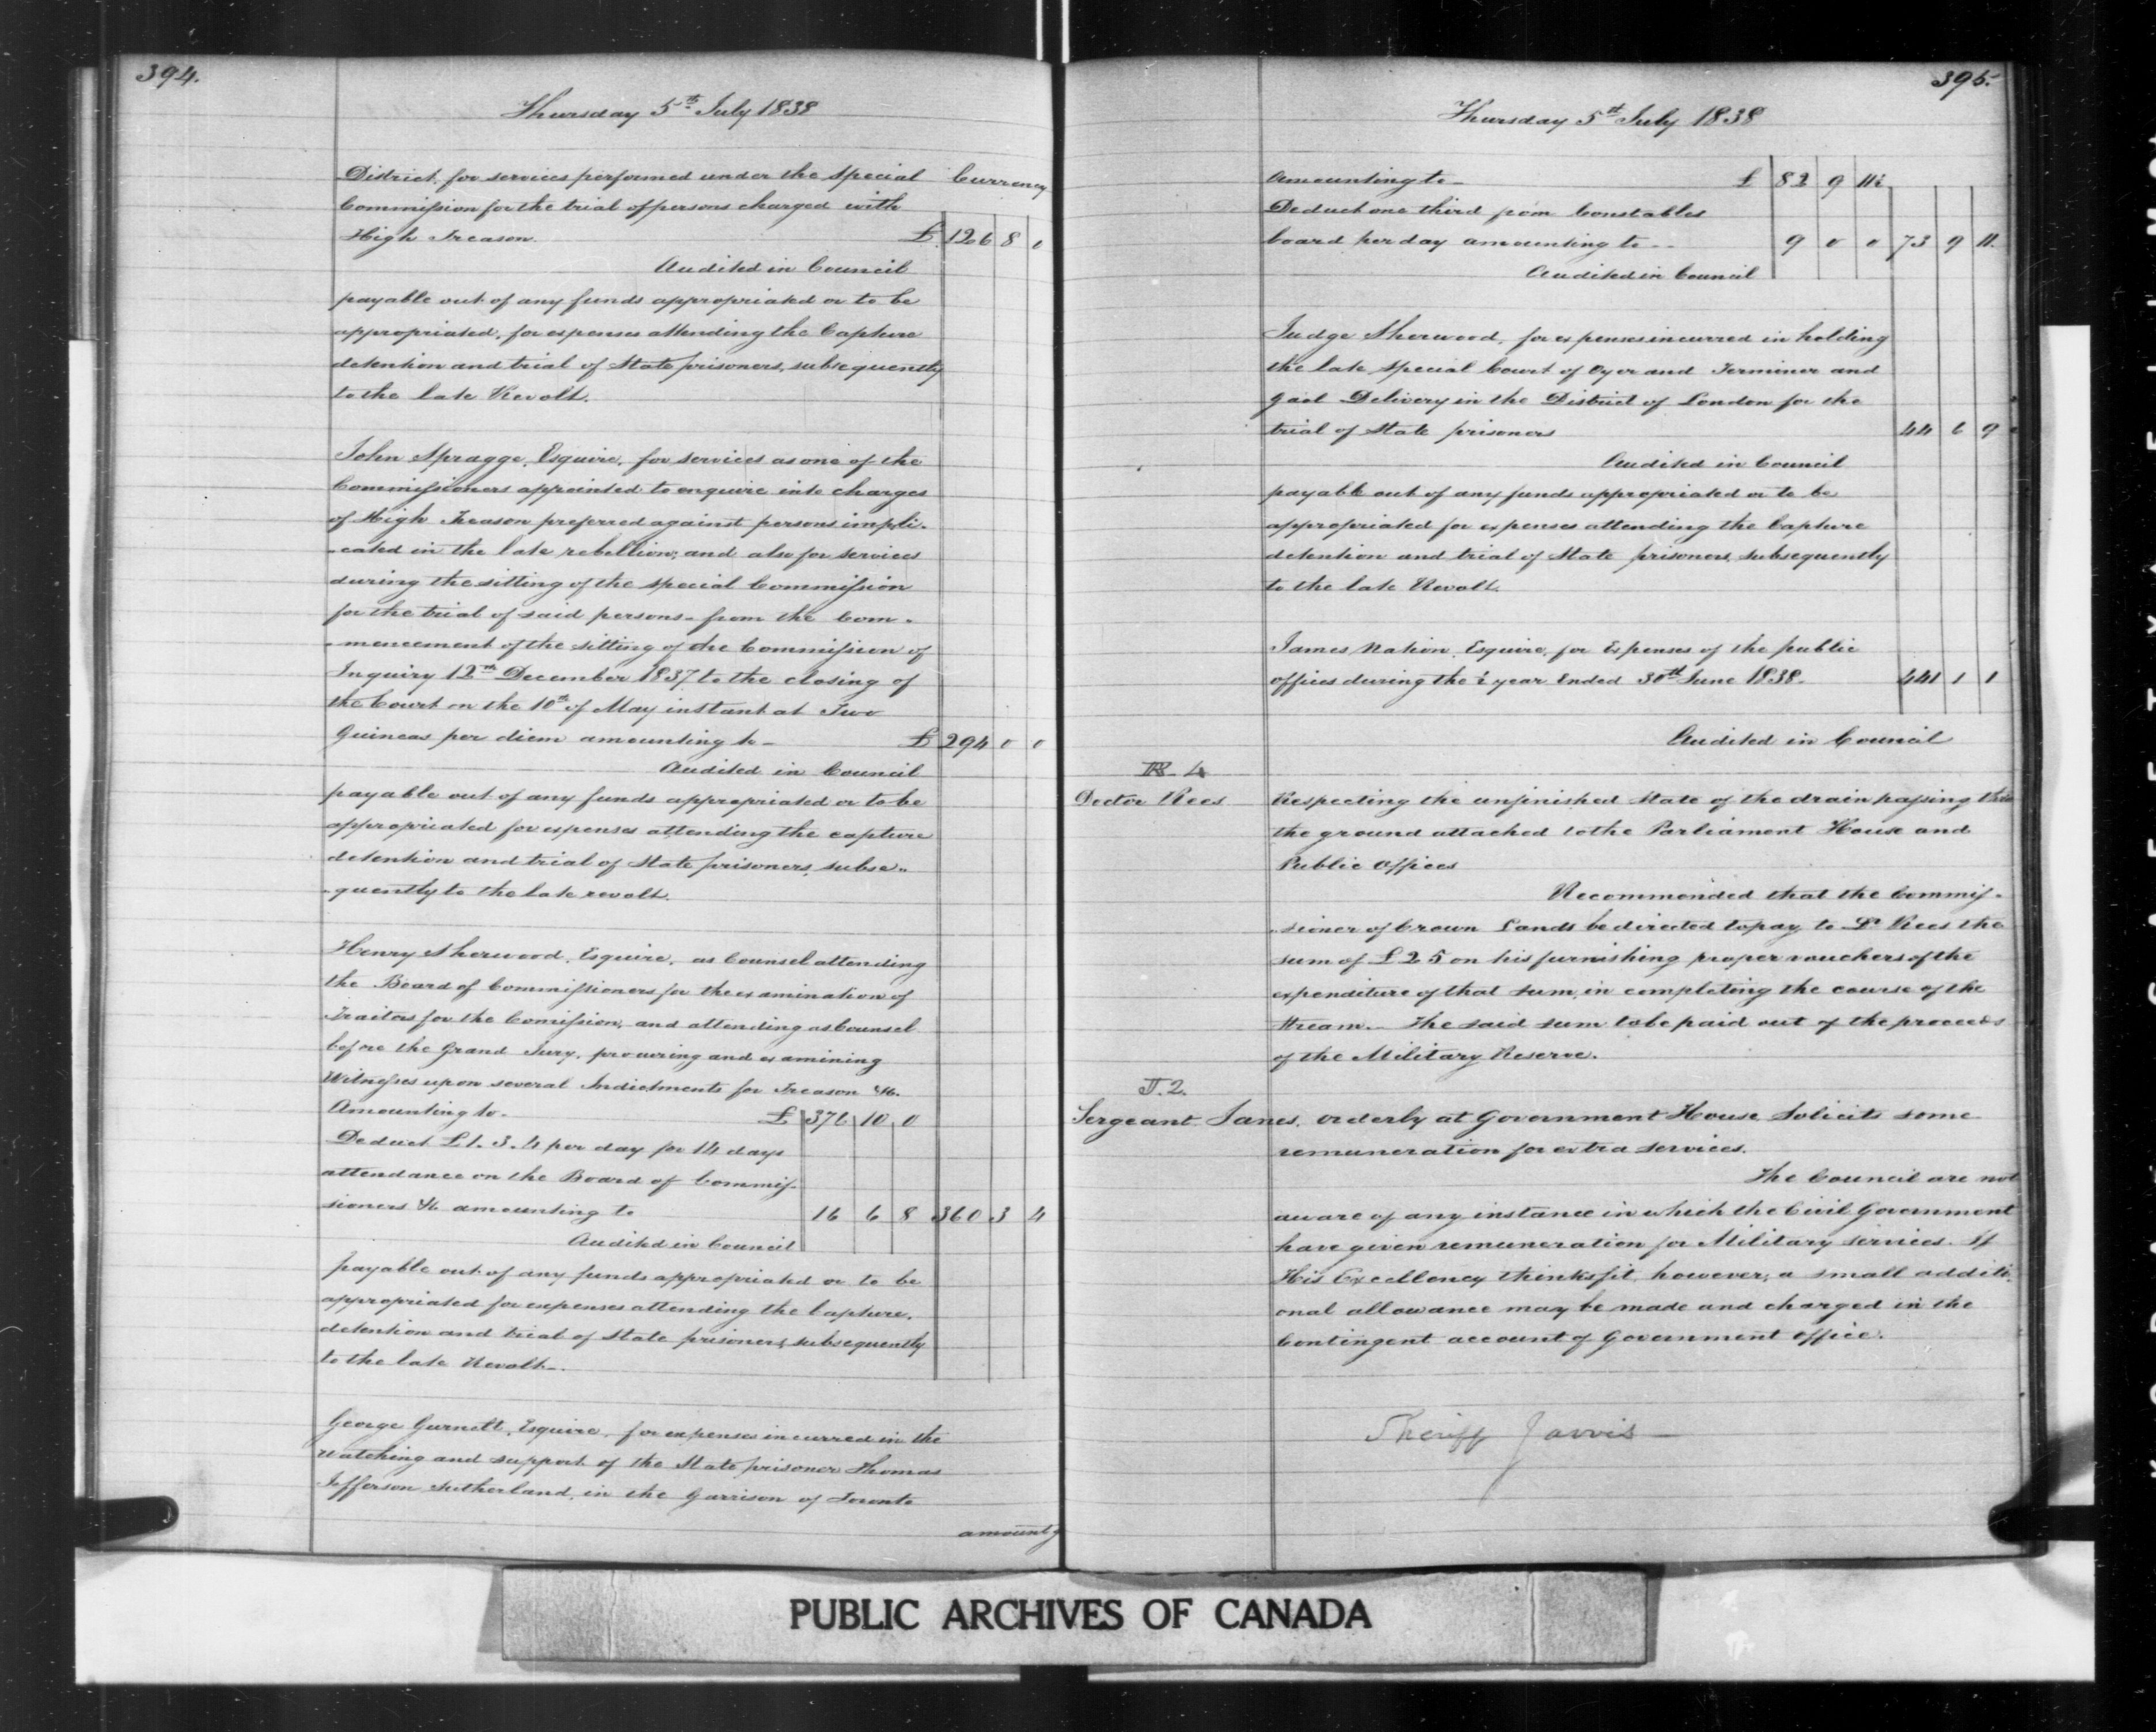 394.
Thursday 5th July 1838
District for services performed under the Special Currency
Commission for the trial of persons charged with
High Treason. £ 126 8 0
Audited in Council
payable out of any funds appropriated or to be
appropriated, for expenses attending the Capture
detention and trial of State prisoners, subsequently
to the late Revolt.
John Spragge, Esquire, for services as one of the
Commissioners appointed to enquire into charges
of High Treason preferred against persons impli-
-cated in the late rebellion; and also for services
during the sitting of the special Commission
for the trial of said persons - from the Com-
-mencement of the sitting of the Commission of
Inquiry 12th December 1837 to the closing of
the Court on the 10th of May instant at Two
Guineas per diem amounting to - £ 294 0 0
Audited in Council
payable out of any funds appropriated or to be
appropriated for expenses attending the capture
detention and trial of State prisoners, subse-
-quently to the late revolt.
Henry Sherwood, Esquire, as Counsel attending
the Board of Commissioners for the examination of
Traitors for the Comission, and attending as Counsel
before the Grand Jury, procuring and examining
Witnesses upon several Indictments for Treason &c.
Amounting to - £ 376 10 0
Deduct £1. 3. 4 per day for 14 days
attendance on the Board of Commis-
sioners &c amounting to 16 6 8 360 3 4
Audited in Council
payable out of any funds appropriated or to be
appropriated for expenses attending the Capture,
detention and trial of State prisoners, subsequently
to the late Revolt -
George Gurnett, Esquire, for expenses incurred in the
watching and support of the State prisoner Thomas
Jefferson Sutherland, in the Garrison of Toronto
amountg
395.
Thursday 5th July 1838
Amounting to - £ 82 9 11½
Deduct one third from Constables
board per day amounting to - - 9 0 0 73 9 11.
Audited in Council
Judge Sherwood, for expenses incurred in holding
the late Special Court of Oyer and Terminer and
Gaol Delivery in the District of London for the
trial of State prisoners 44 6 9
Audited in Council
payable out of any funds appropriated or to be
appropriated for expenses attending the Capture
detention and trial of State prisoners, subsequently
to the late Revolt.
James Nation, Esquire, for Expenses of the public
offices during the ½ year Ended 30th June 1838. 441 1 1
Audited in Council
R 4
Doctor Rees Respecting the unfinished state of the drain passing thro
the ground attached to the Parliament House and
Public Offices
Recommended that the Commis-
-sioner of Crown Lands be directed to pay to Dr Rees the
sum of £25 on his furnishing proper vouchers of the
expenditure of that sum, in completing the course of the
stream. - The said sum to be paid out of the proceeds
of the Military Reserve.
J. 2.
Sergeant Janes, orderly at Government House Solicits some
remuneration for extra services.
The Council are not
aware of any instance in which the Civil Government
have given remuneration for Military services. If
His Excellency thinks fit, however, a small additi-
onal allowance may be made and charged in the
Contingent account of Government Office.
Sheriff Jarvis -
PUBLIC ARCHIVES OF CANADA